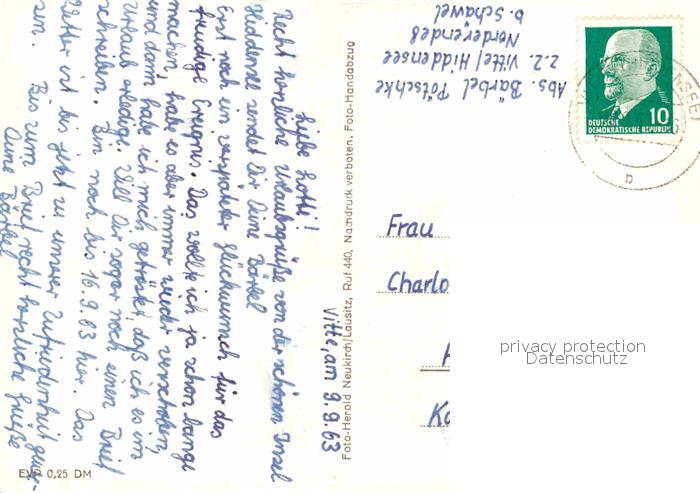 Abs. Bärbel Pötschke
z.Z. Vitte/Hiddensee
Norderende 8
b. Schawel
DEUTSCHE
DEMOKRATISCHE REPUBLIK
10
b
Vitte, am 9.9.63
Liebe Lotti!
Recht herzliche Urlaubsgrüße von der schönen Insel
Hiddensee sendet Dir Deine Bärbel
Erst noch ein verspäteter Glückwunsch für das
freudige Ereignis. Das wollte ich ja schon lange
machen, habe es aber immer wieder verschoben,
und dann habe ich mich getröstet, daß ich es im
Urlaub erledige. Will Dir sogar noch einen Brief
schreiben. Bin noch bis 16.9.63 hier. Das
Wetter ist bis jetzt zu unserer Zufriedenheit gewe-
sen. Bis zum Brief recht herzliche Grüße
Deine Bärbel
Foto-Herold Neukirch/Lausitz, Ruf 440, Nachdruck verboten. Foto-Handabzug
Frau
Charlo
Ka
privacy protection
Datenschutz
EVP 0,25 DM